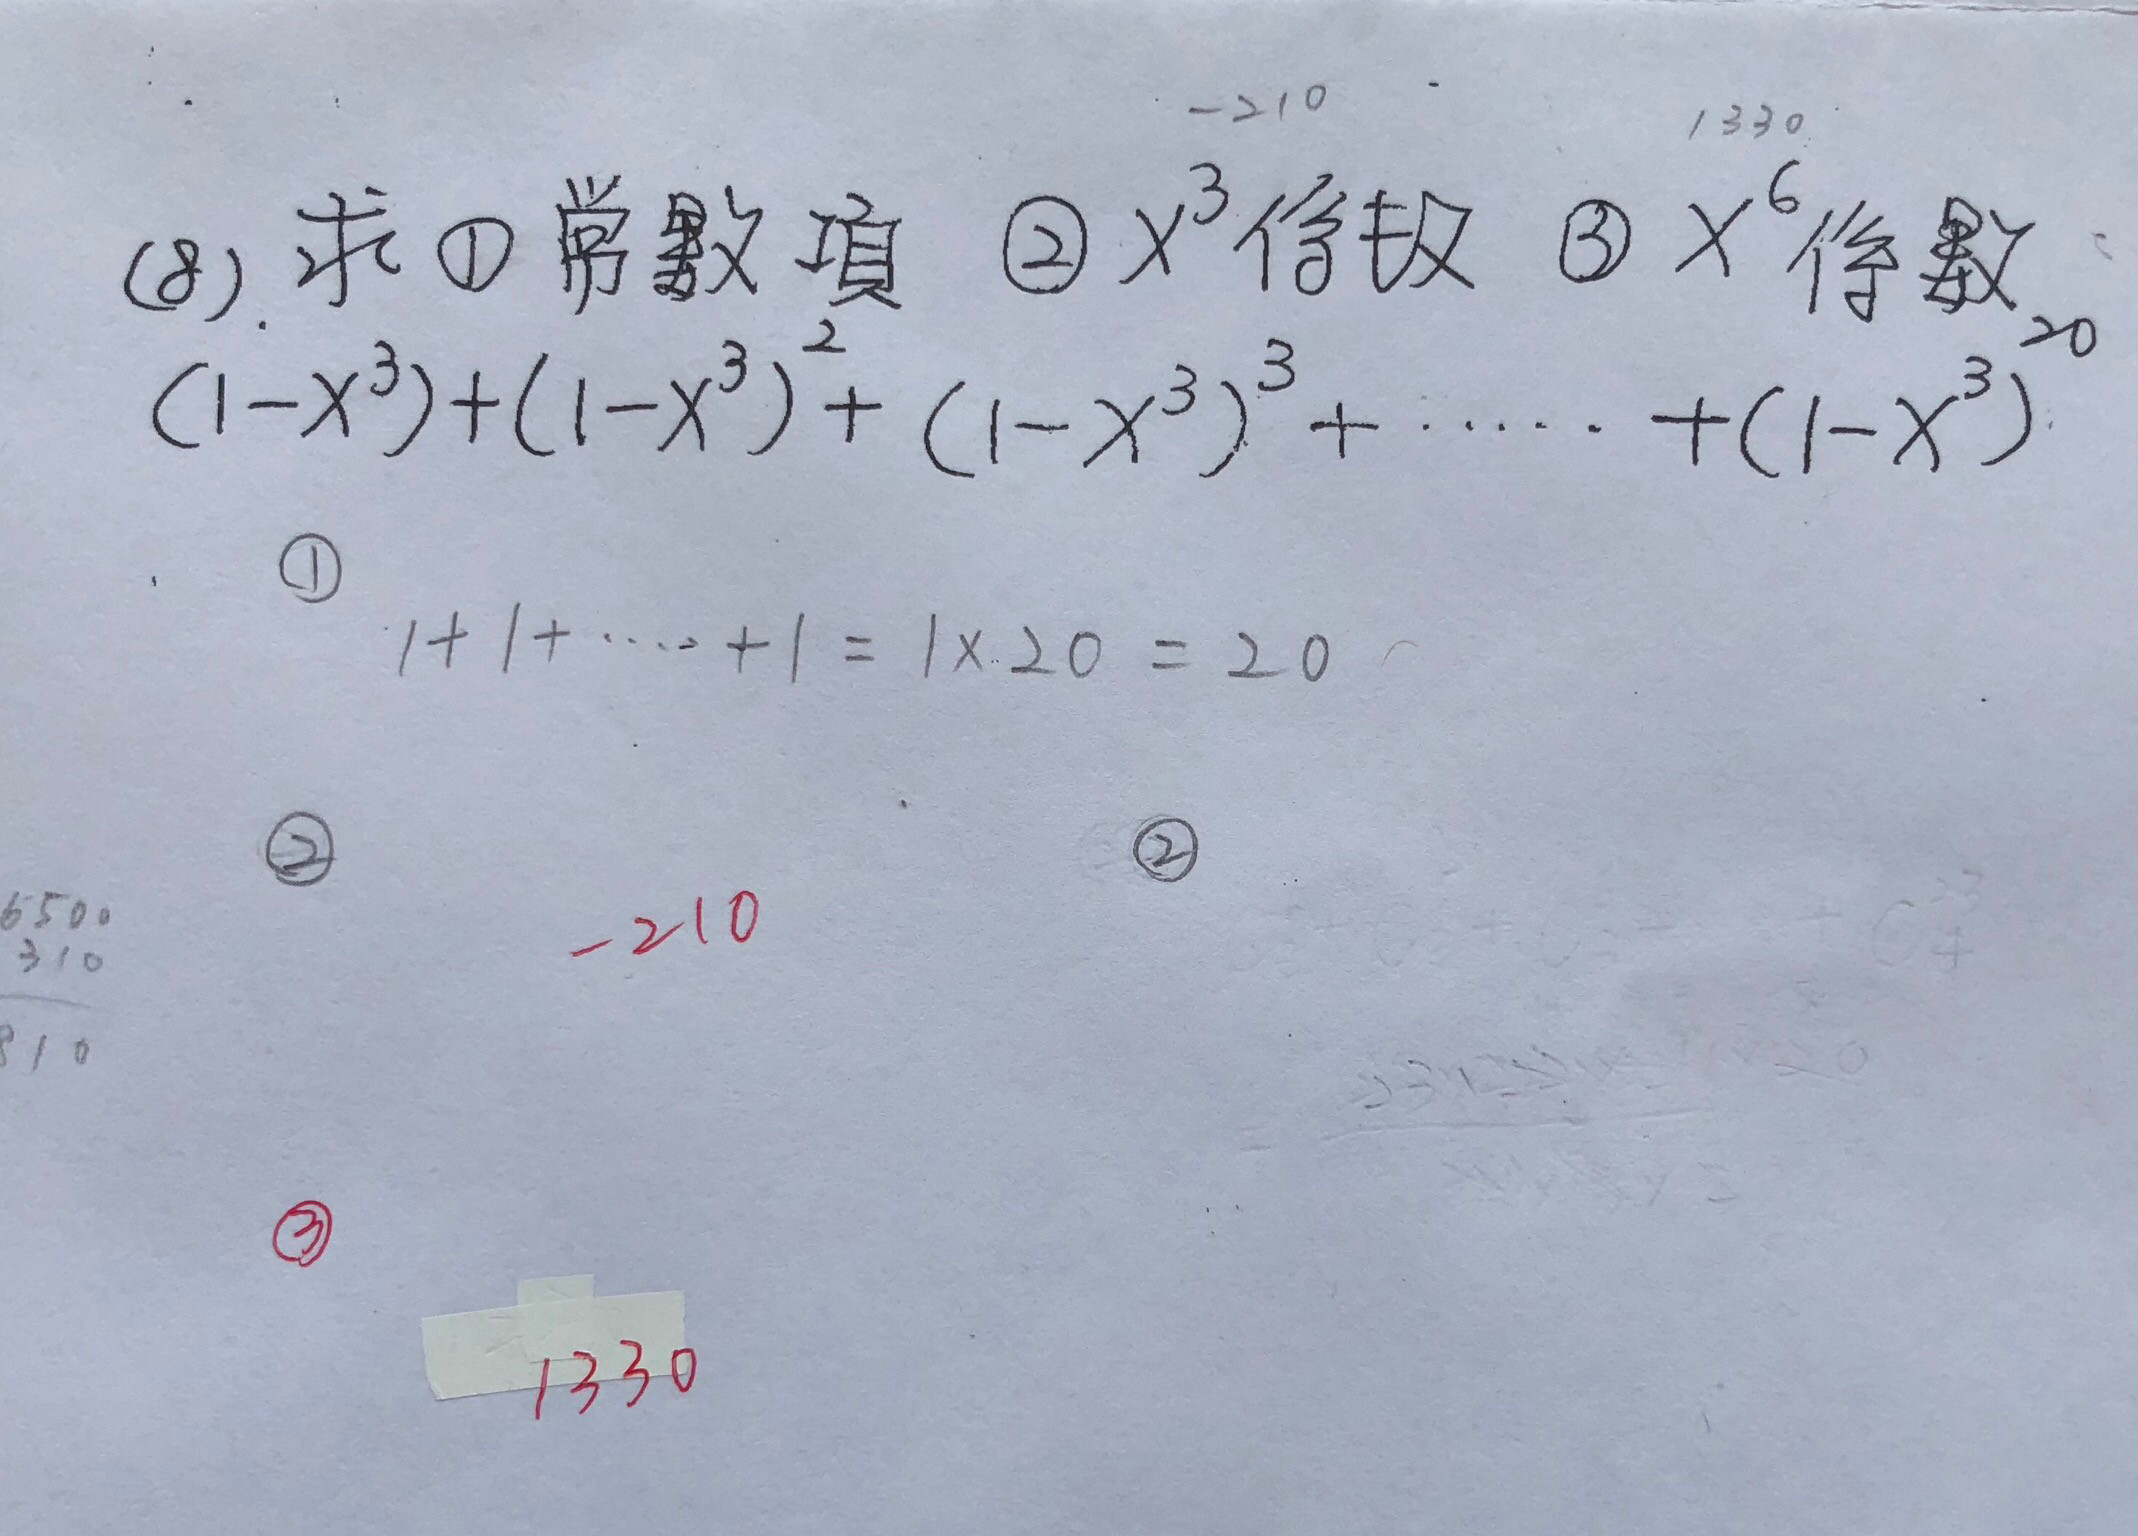 -210 1330
(8). 求 ① 常數項 ② x³係数 ③ x⁶係數
(1-x³)+(1-x³)²+(1-x³)³+......+(1-x³)²⁰
①
1+1+.....+1=1×20=20
② ②
6500
-210
310
810
③
1330